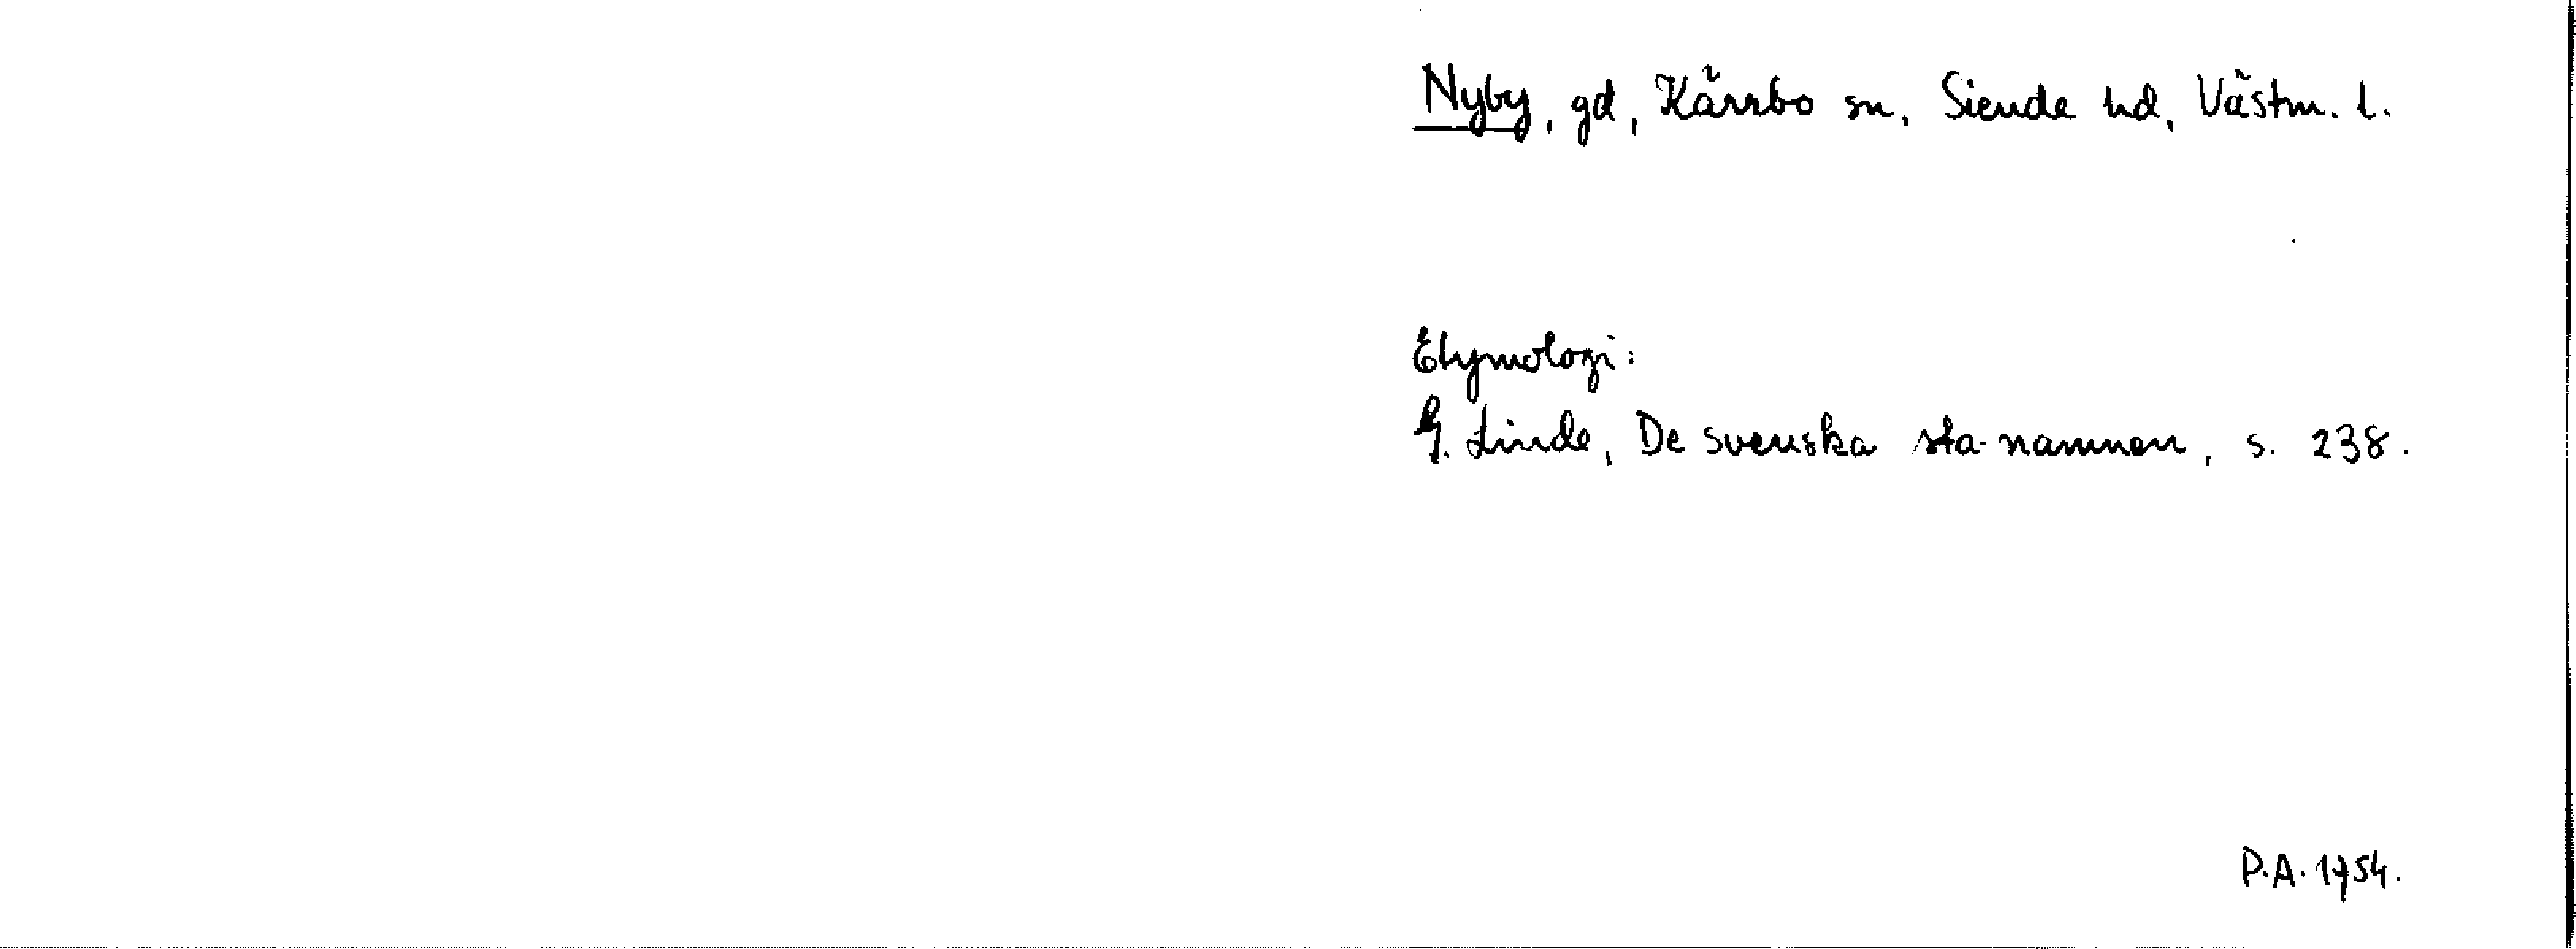 Nyby, gd, Kärrbo sn, Siende hd, Västm. l.
Etymologi:
G. Linde, De svenska sta-namnen, s. 238.
P.A. 1954.